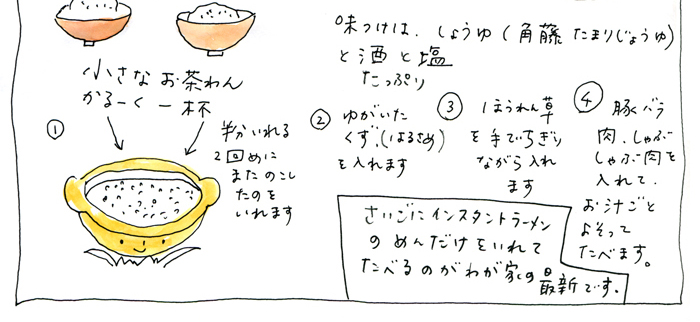 味つけは、しょうゆ(角藤たまりじょうゆ)
と酒と塩
たっぷり
小さなお茶わん
かるーく一杯
①
半分いれる
2回めに
またのこし
たのを
いれます
②
ゆがいた
くず、(はるさめ)
を入れます
③
ほうれん草
を手でちぎり
ながら入れ
ます
④
豚バラ
肉、しゃぶ
しゃぶ肉を
入れて、
お汁ごと
よそって
たべます。
さいごにインスタントラーメン
のめんだけをいれて
たべるのがわが家の最新です。